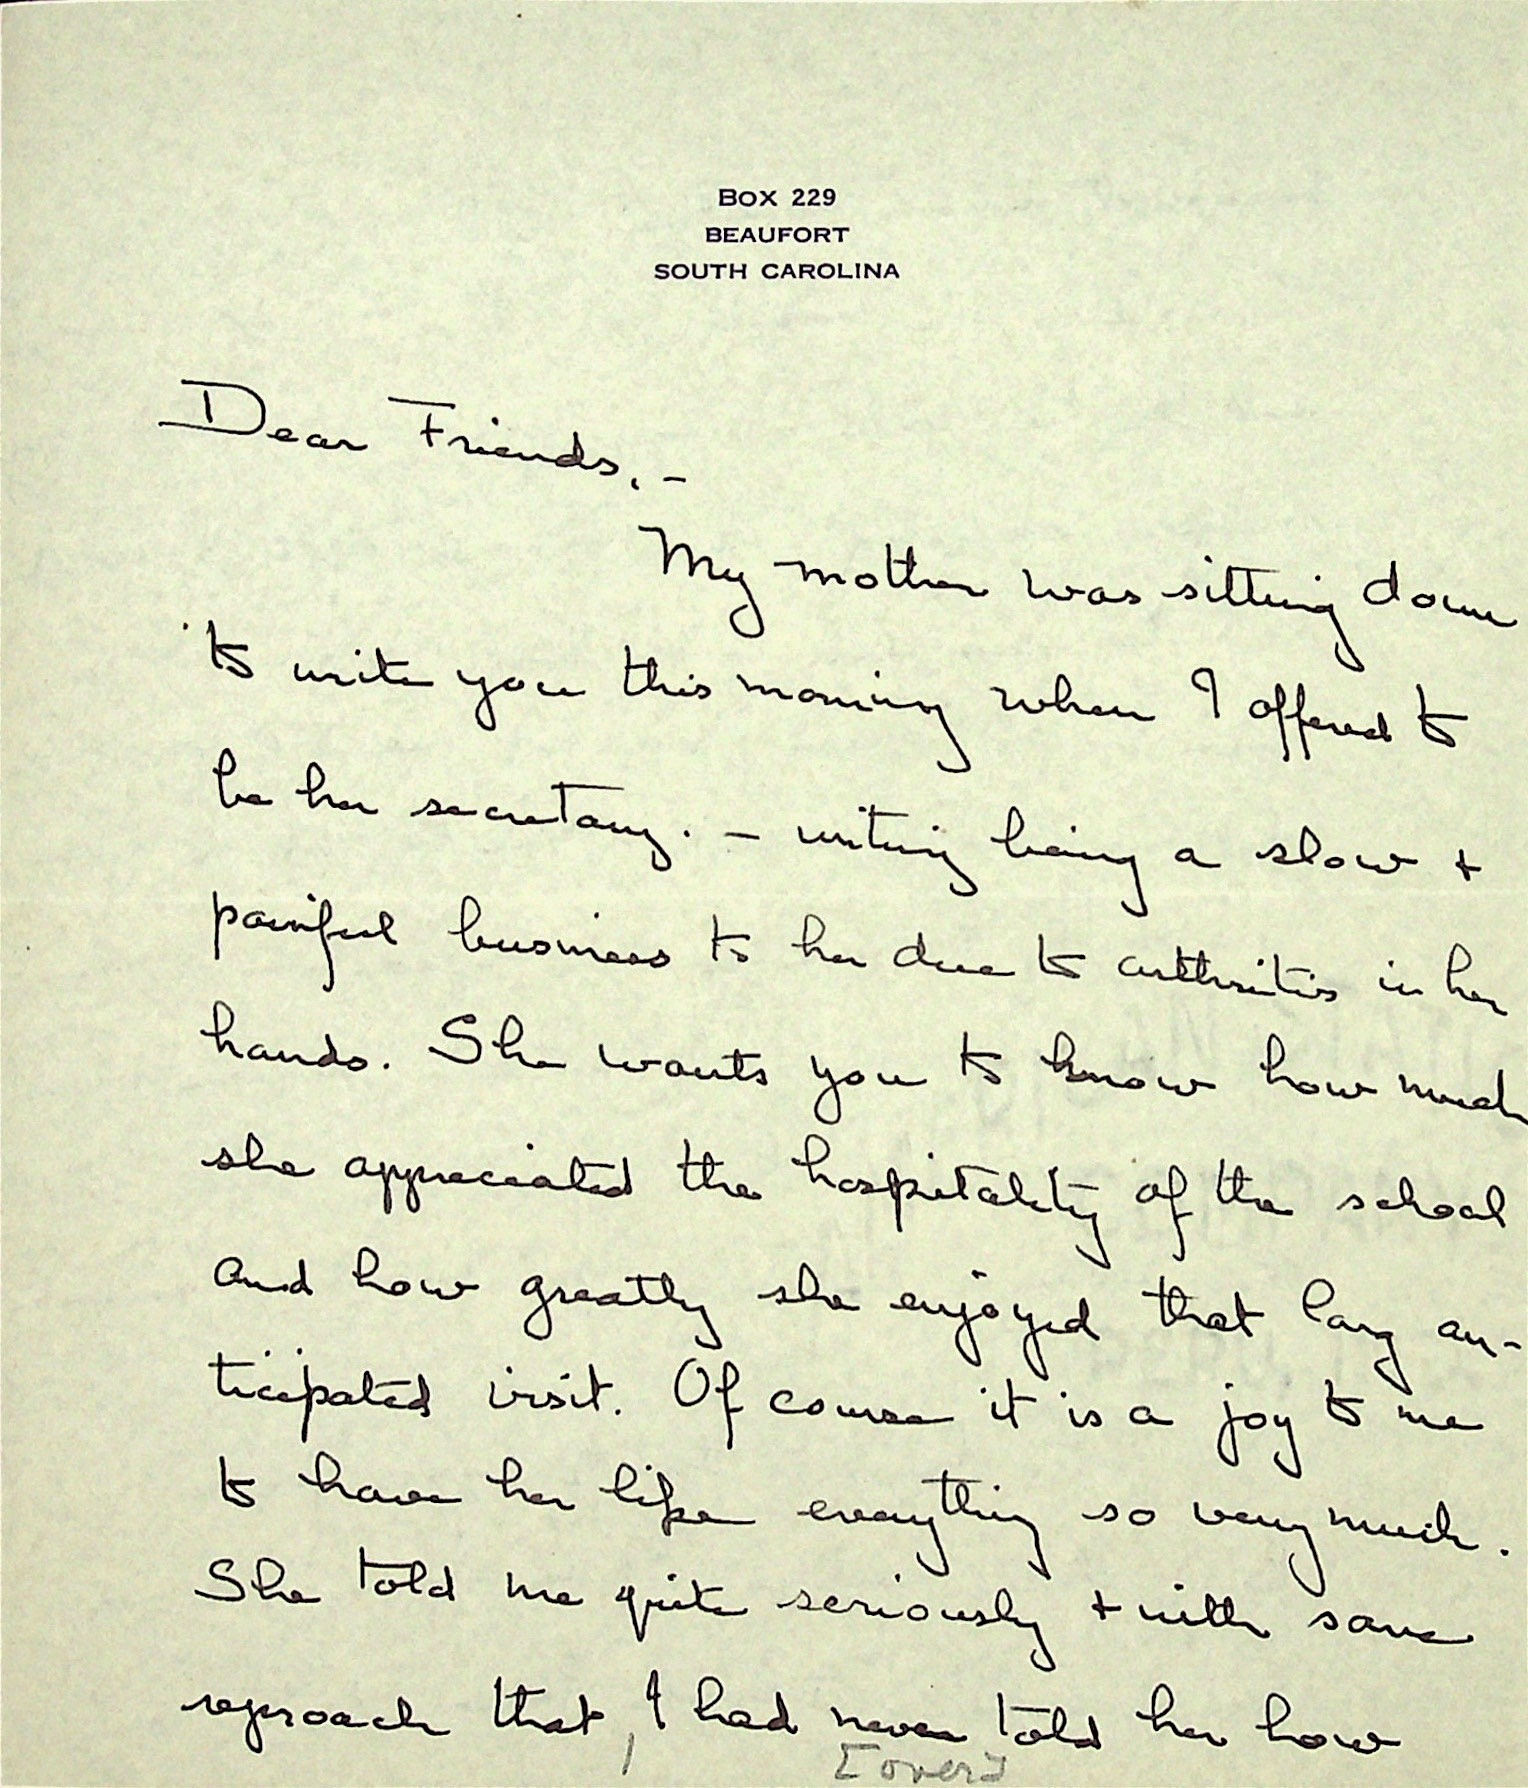 BOX 229
BEAUFORT
SOUTH CAROLINA
Dear Friends, -
My mother was sitting down
to write you this morning when I offered to
be her secretary. - writing being a slow +
painful business to her due to arthritis in her
hands. She wants you to know how much
she appreciated the hospitality of the school
and how greatly she enjoyed that long an-
ticipated visit. Of course it is a joy to me
to have her like everything so very much.
She told me quite seriously + with some
reproach that, I had never told her how
[over]